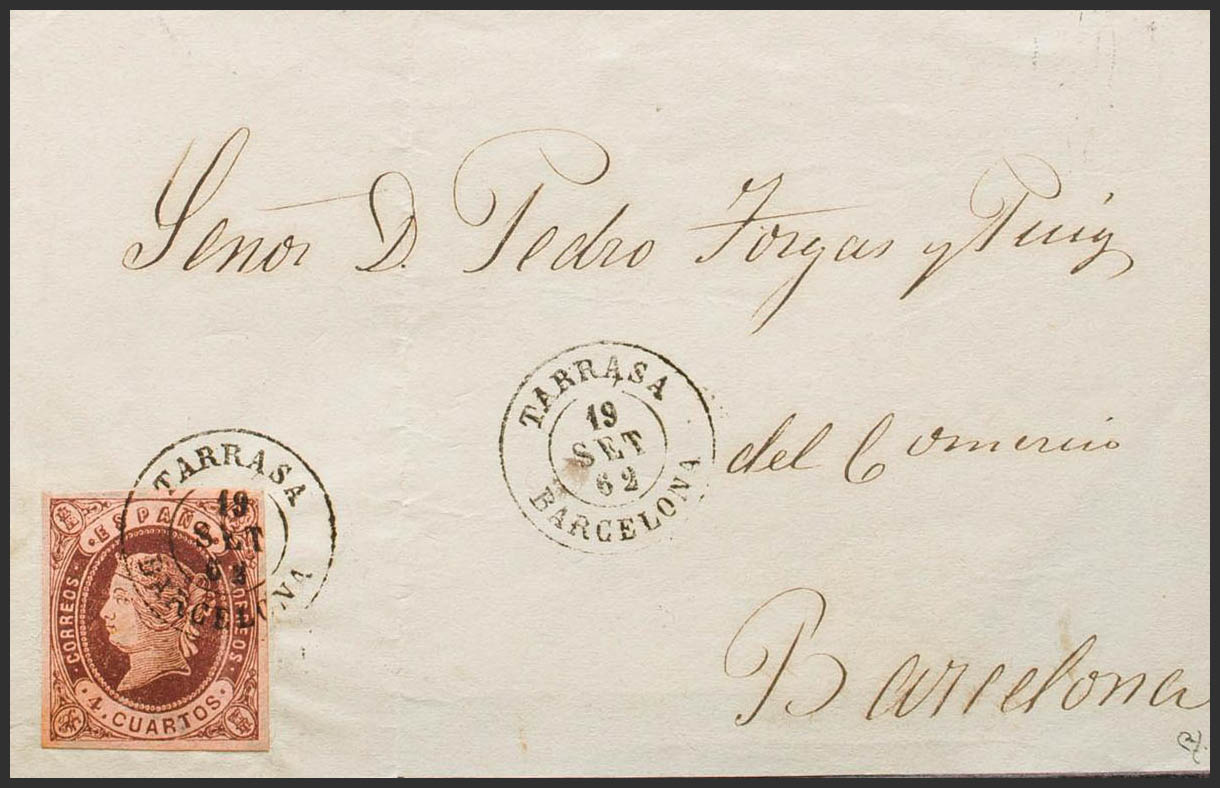 Señor D. Pedro Forgas y Puig
TARRASA
19
SET
62
BARCELONA
del Comercio
TARRASA
19
SET
62
BARCELONA
· ESPAÑA ·
· CORREOS ·
· CORREOS ·
· 4. CUARTOS ·
Barcelona